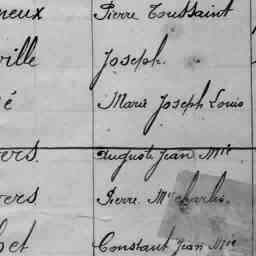 neux Pierre Toussaint
ville Joseph
é Marie Joseph Louis
ers. Auguste Jean Mie
vers Pierre Mie Charles.
het Constant Jean Mie